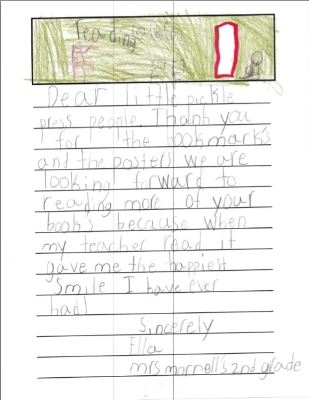 reading
Dear little pickle
press people. Thank you
for the bookmarks
and the posters we are
looking forward to
reading more of your
books because when
my teacher read it
gave me the happiest
smile I have ever
had!
Sincerely
Ella
mrs mornell's 2nd grade